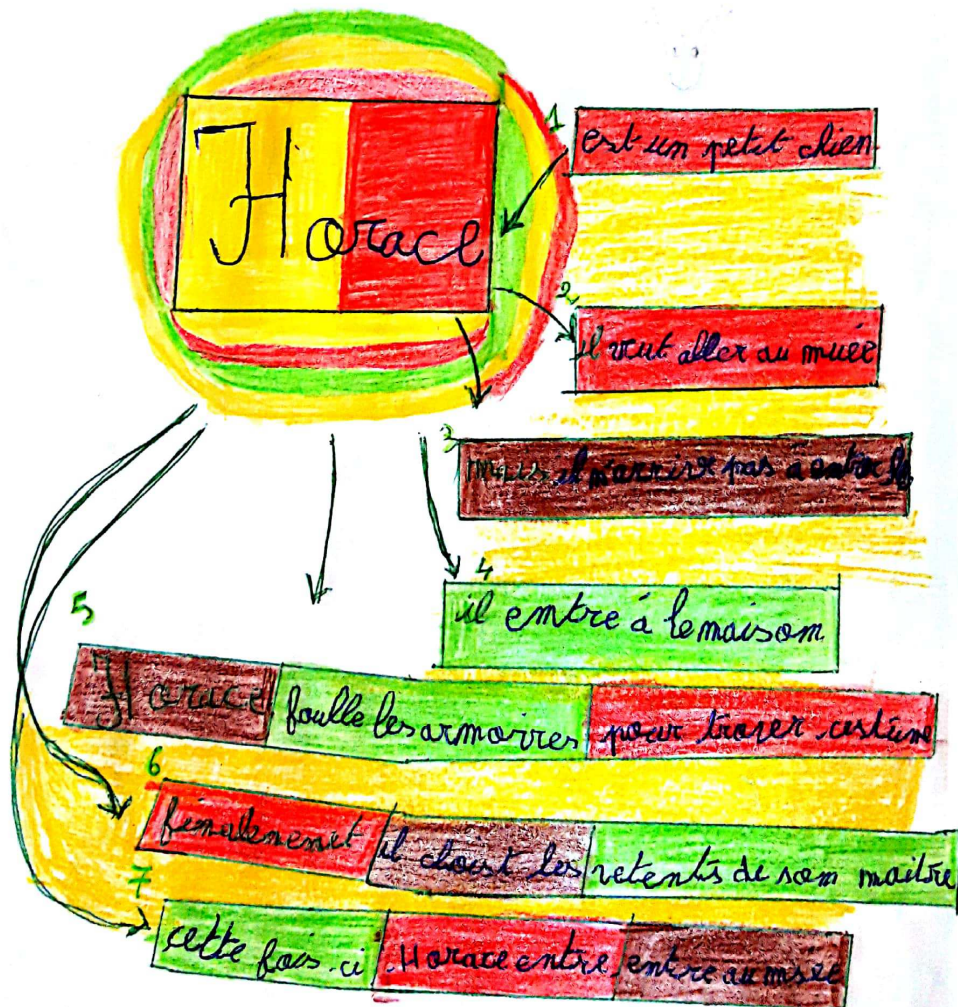 Horace
1 est un petit chien
2 il veut aller au muér
3 mais il n'arrive pas à entre
4 il entre à le maison
5 Horace foulle les armoirres pour trover costume
6 finalemenet il choist les vetents de son maitre
7 cette fois-ci Horace entre entre au msée